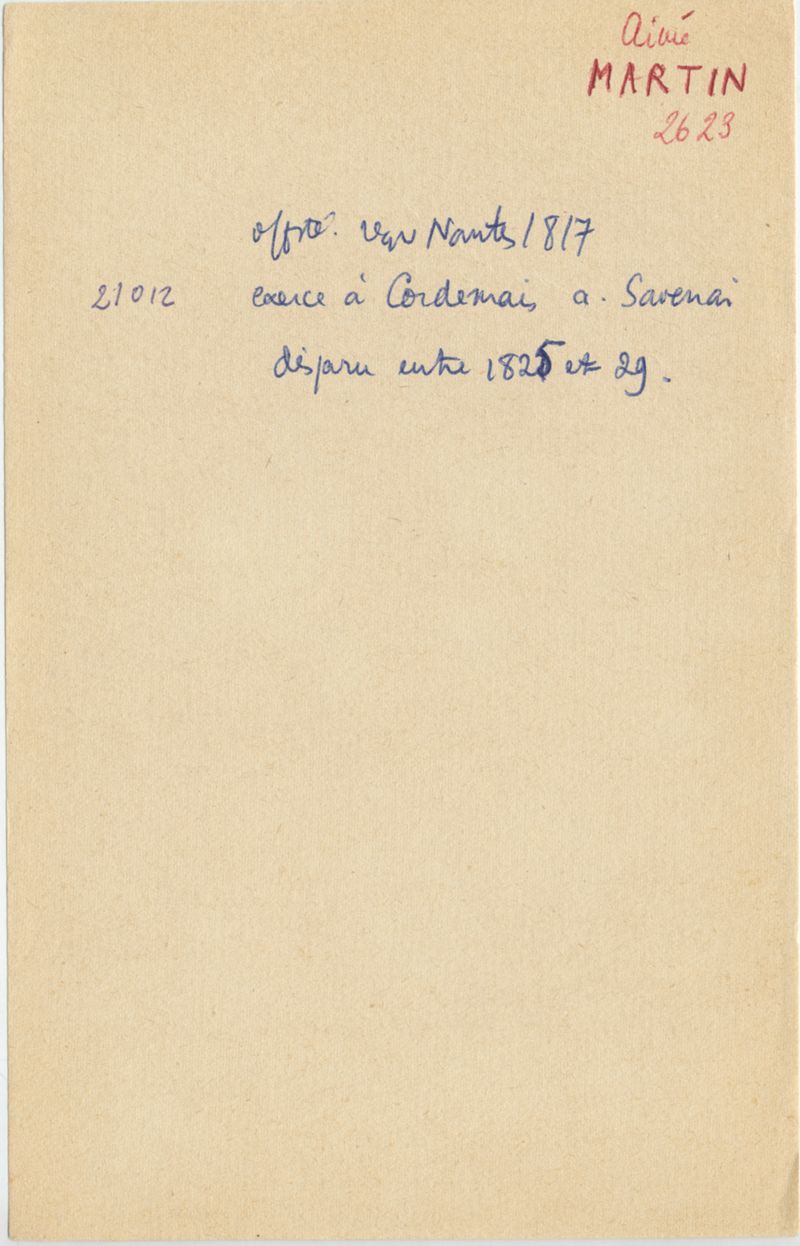 Aimé
MARTIN
2623
offté. reçu Nantes 1817
21012 exerce à Cordemais a. Savenai
disparu entre 1825 et 29.